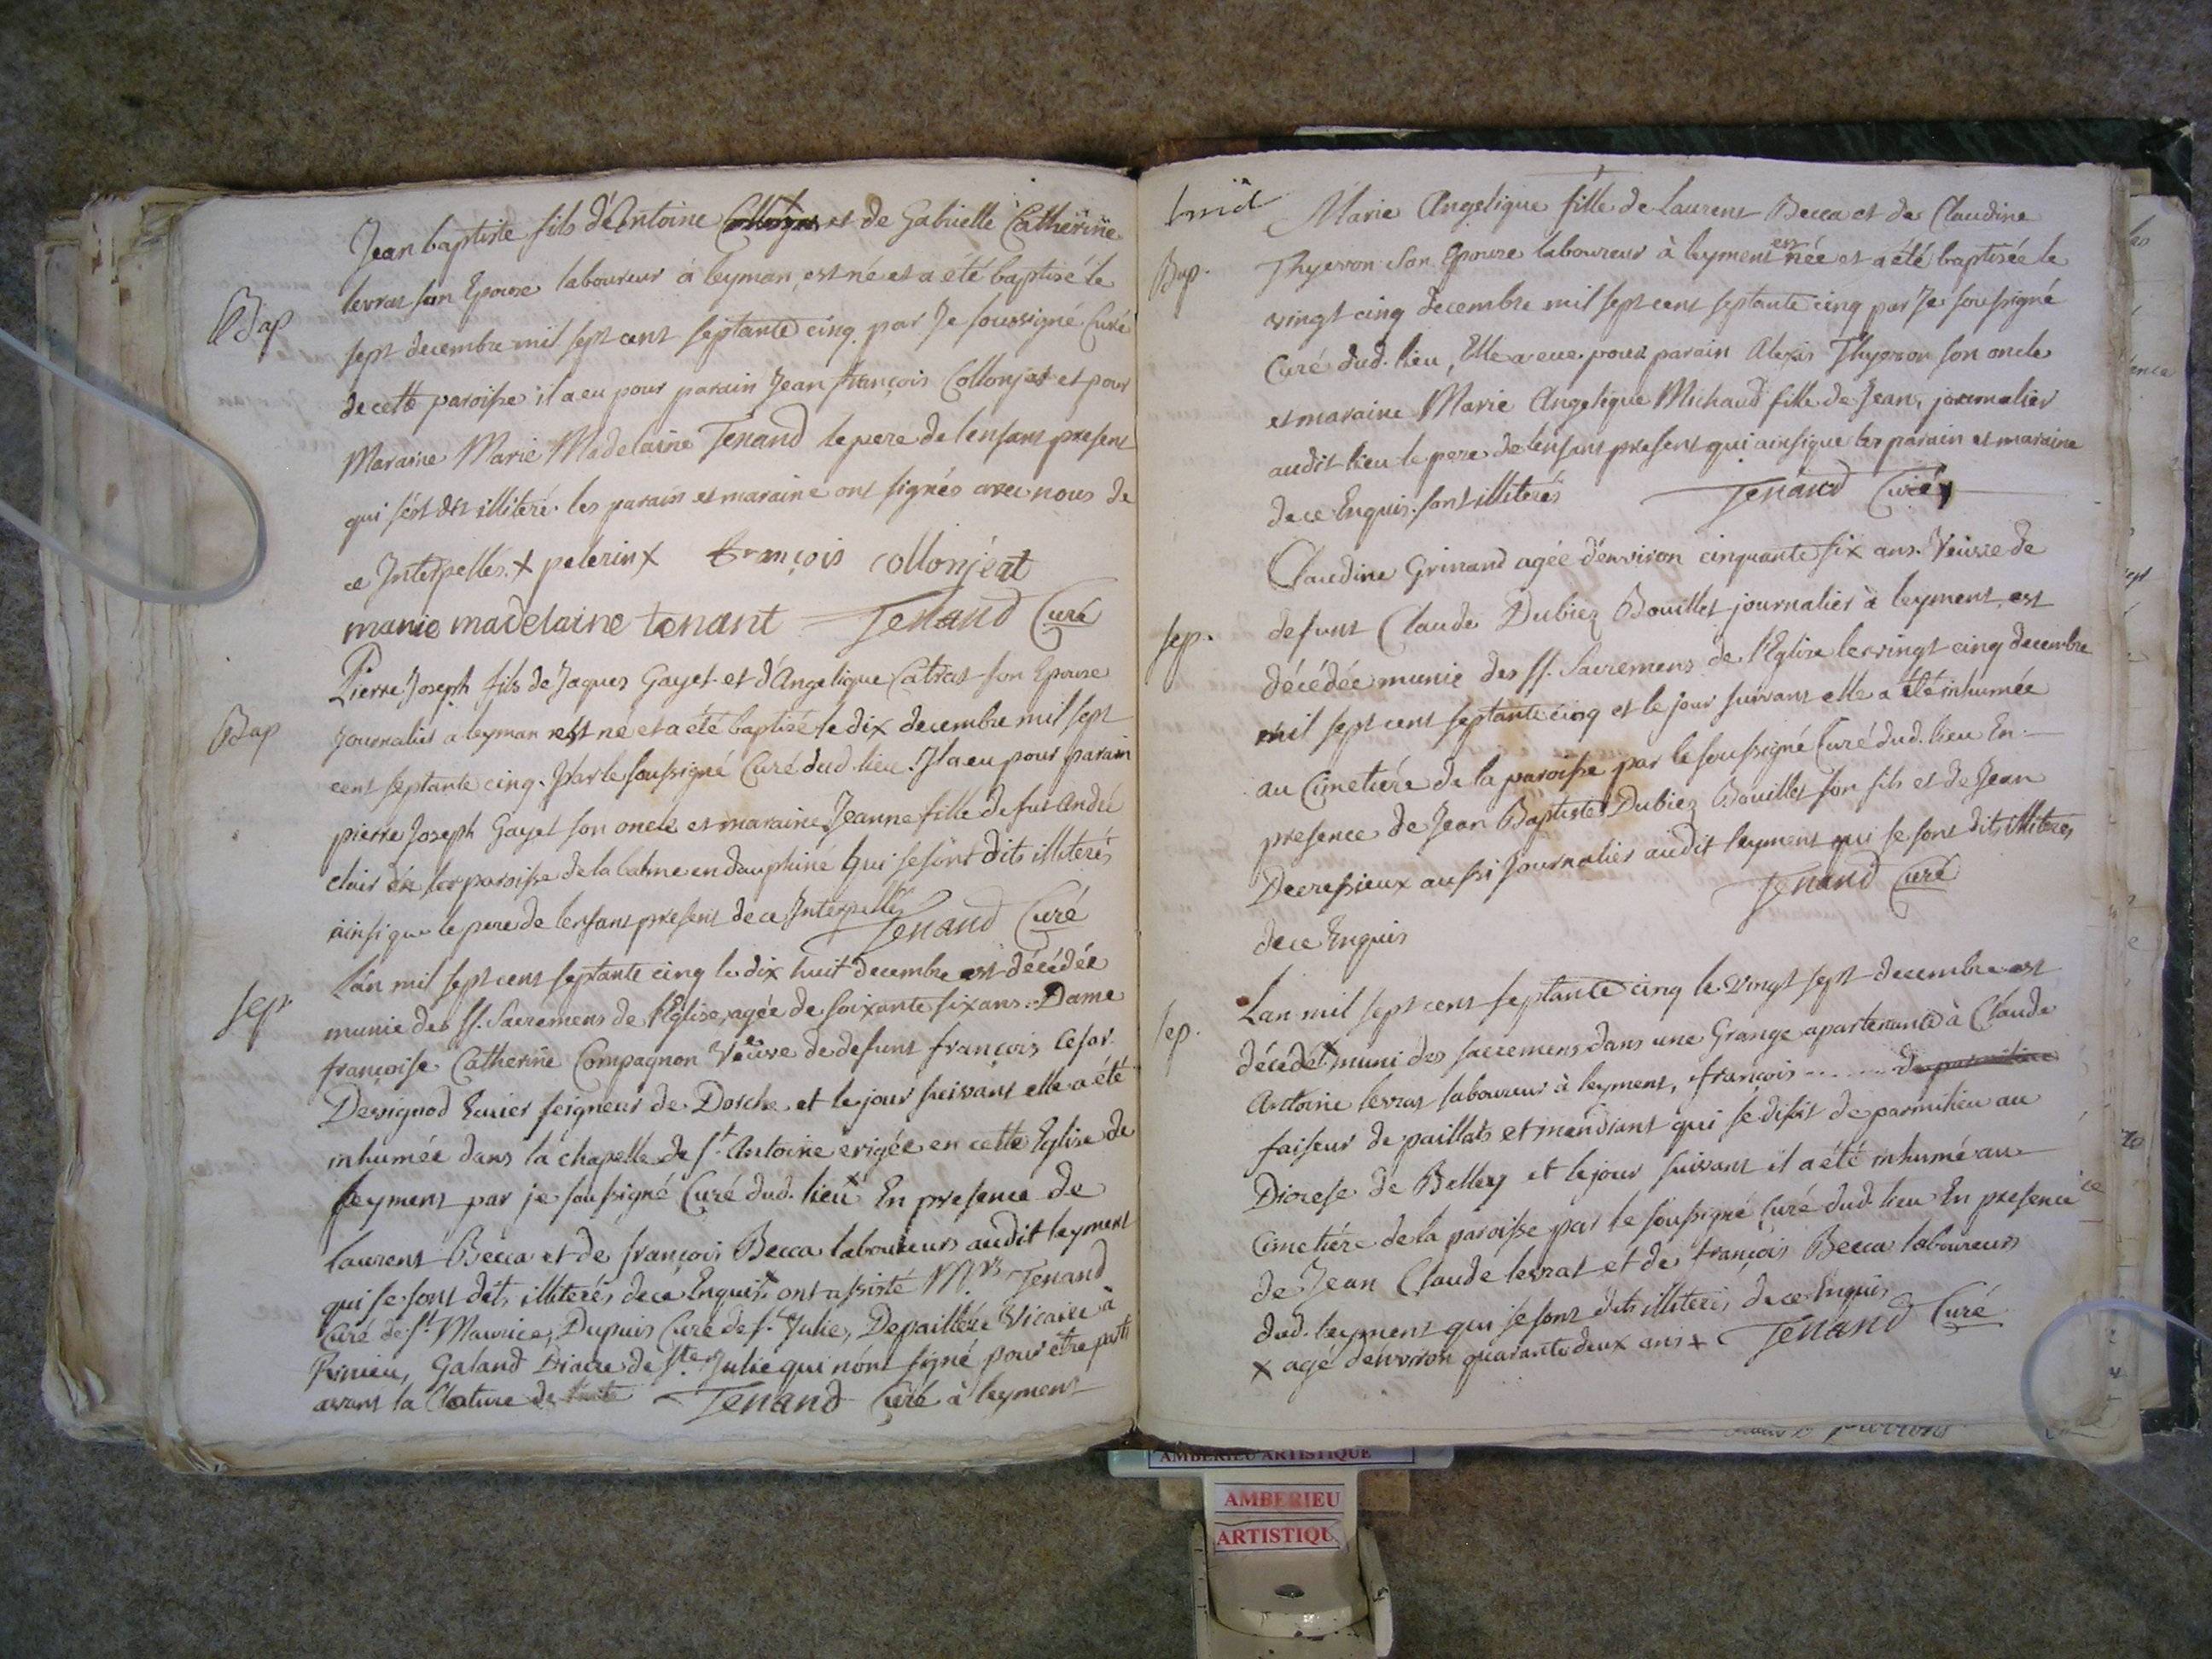 Jean baptiste fils d'Antoine et de Gabrielle Catherine
levrat son Epouse laboureur à leyman, est né et a été baptisé le
Bap
sept decembre mil sept cent septante cinq par Je soussigné Curé
de cette paroisse il a eu pour parain Jean françois Collonjat et pour
Maraine Marie Madelaine Tenand le pere de l'enfant present
qui s'est dit illiteré. les parain et maraine ont signés avec nous de
ce Interpellés. x pelerin x françois collonjeat
marie madelaine tenant Tenand Curé
Pierre Joseph fils de Jaques Gayet et d'Angelique Catras son Epouse
Bap
Journalier a leyman est né et a été baptisé le dix decembre mil sept
cent septante cinq. Par le soussigné Curé dud. lieu. Il a eu pour parain
pierre Joseph Gayet son oncle et maraine Jeanne fille de fut André
clair de la paroisse de la balme en dauphiné qui se sont dits illiterés
ainsi que le pere de l'enfant present de ce Interpellés
Tenand Curé
L'an mil sept cent septante cinq le dix huit decembre est décédée
sep.
munie des SS. Sacremens de l'Eglise, agée de soixante six ans. Dame
françoise Catherine Compagnon Veuve de defunt françois Cesar
Devignod Ecuier seigneur de Dorche et le jour suivant elle a été
inhumée dans la chapelle de St. Antoine erigée en cette Eglise de
leyment par je soussigné Curé dud. lieu x En presence de
laurent Becca et de françois Becca laboureurs audit leyment
qui se sont dits illiterés de ce Enquis x ont assisté Mrs Tenand
Curé de St. Maurice, Dupuis Curé de ste. Julie, Depaillere Vicaire à
Galand Diacre de Ste. Julie qui n'ont signé pour être parti
avant la Cloture de Tenand Curé à leyment
Marie Angelique fille de laurent Becca et de Claudine
Bap.
Thyerron son Epouse laboureur à leyment est née et a été baptisée le
vingt cinq decembre mil sept cent septante cinq par Je soussigné
Curé dud. lieu, Elle a eue pour parain Alexis Thyerron son oncle
et maraine Marie Angelique Michaud fille de Jean, journalier
audit lieu le pere de l'enfant present qui ainsi que les parain et maraine
de ce Enquis sont illiterés Tenand Curé
Claudine Grinand agée d'environ cinquante six ans. Veuve de
sep.
defunt Claude Dubiez Bouillet journalier à leyment, est
décédée munie des SS. Sacremens de l'Eglise le vingt cinq decembre
mil sept cent septante cinq et le jour suivant elle a été inhumée
au Cimetiére de la paroisse par le soussigné Curé dud. lieu En
presence de Jean Baptiste Dubiez Bouillet son fils et de Jean
Decressieux aussi Journalier audit leyment qui se sont dits illiteres
de ce Enquis
Tenand Curé
L'an mil sept cent septante cinq le vingt sept decembre est
sep.
décédé x muni des sacremens dans une Grange apartenante à Claude
Antoine levrat laboureur à leyment, françois ........
faiseur de paillats et mendiant qui se disoit de parmilieu au
Diocese de Belley et le jour suivant il a été inhumé au
Cimetiére de la paroisse par le soussigné Curé dud. lieu En presence
de Jean Claude levrat et de françois Becca laboureurs
dud. leyment qui se sont dits illiterés de ce Enquis
x agé d'environ quarante deux ans + Tenand Curé
AMBERIEU ARTISTIQUE
AMBERIEU
ARTISTIQU